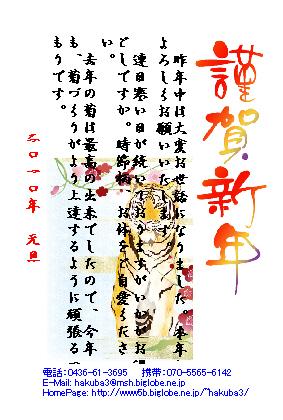 謹賀新年
昨年中は大変お世話になりました。本年
よろしくお願いいたします。
連日寒い日が続いておりますがいかがお
どしですか。時節柄、お体をご自愛くださ
い。
去年の菊は最高の出来でしたので、今年
も、菊づくりがより上達するように頑張る
もりです。
二〇一〇年 元旦
電話:0436-61-3695 携帯:070-5565-6142
E-Mail: hakuba3@msh.biglobe.ne.jp
HomePage: http://www5b.biglobe.ne.jp/~hakuba3/